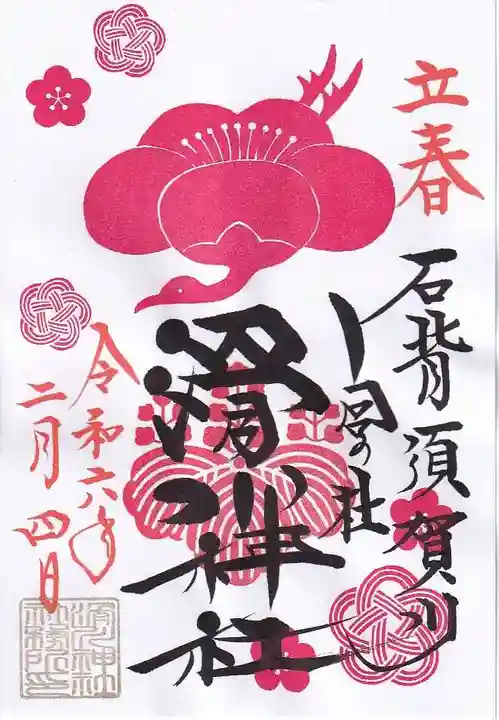 立春
石背須賀川
滑川神社
令和六年
二月四日
滑川神社
社務所印